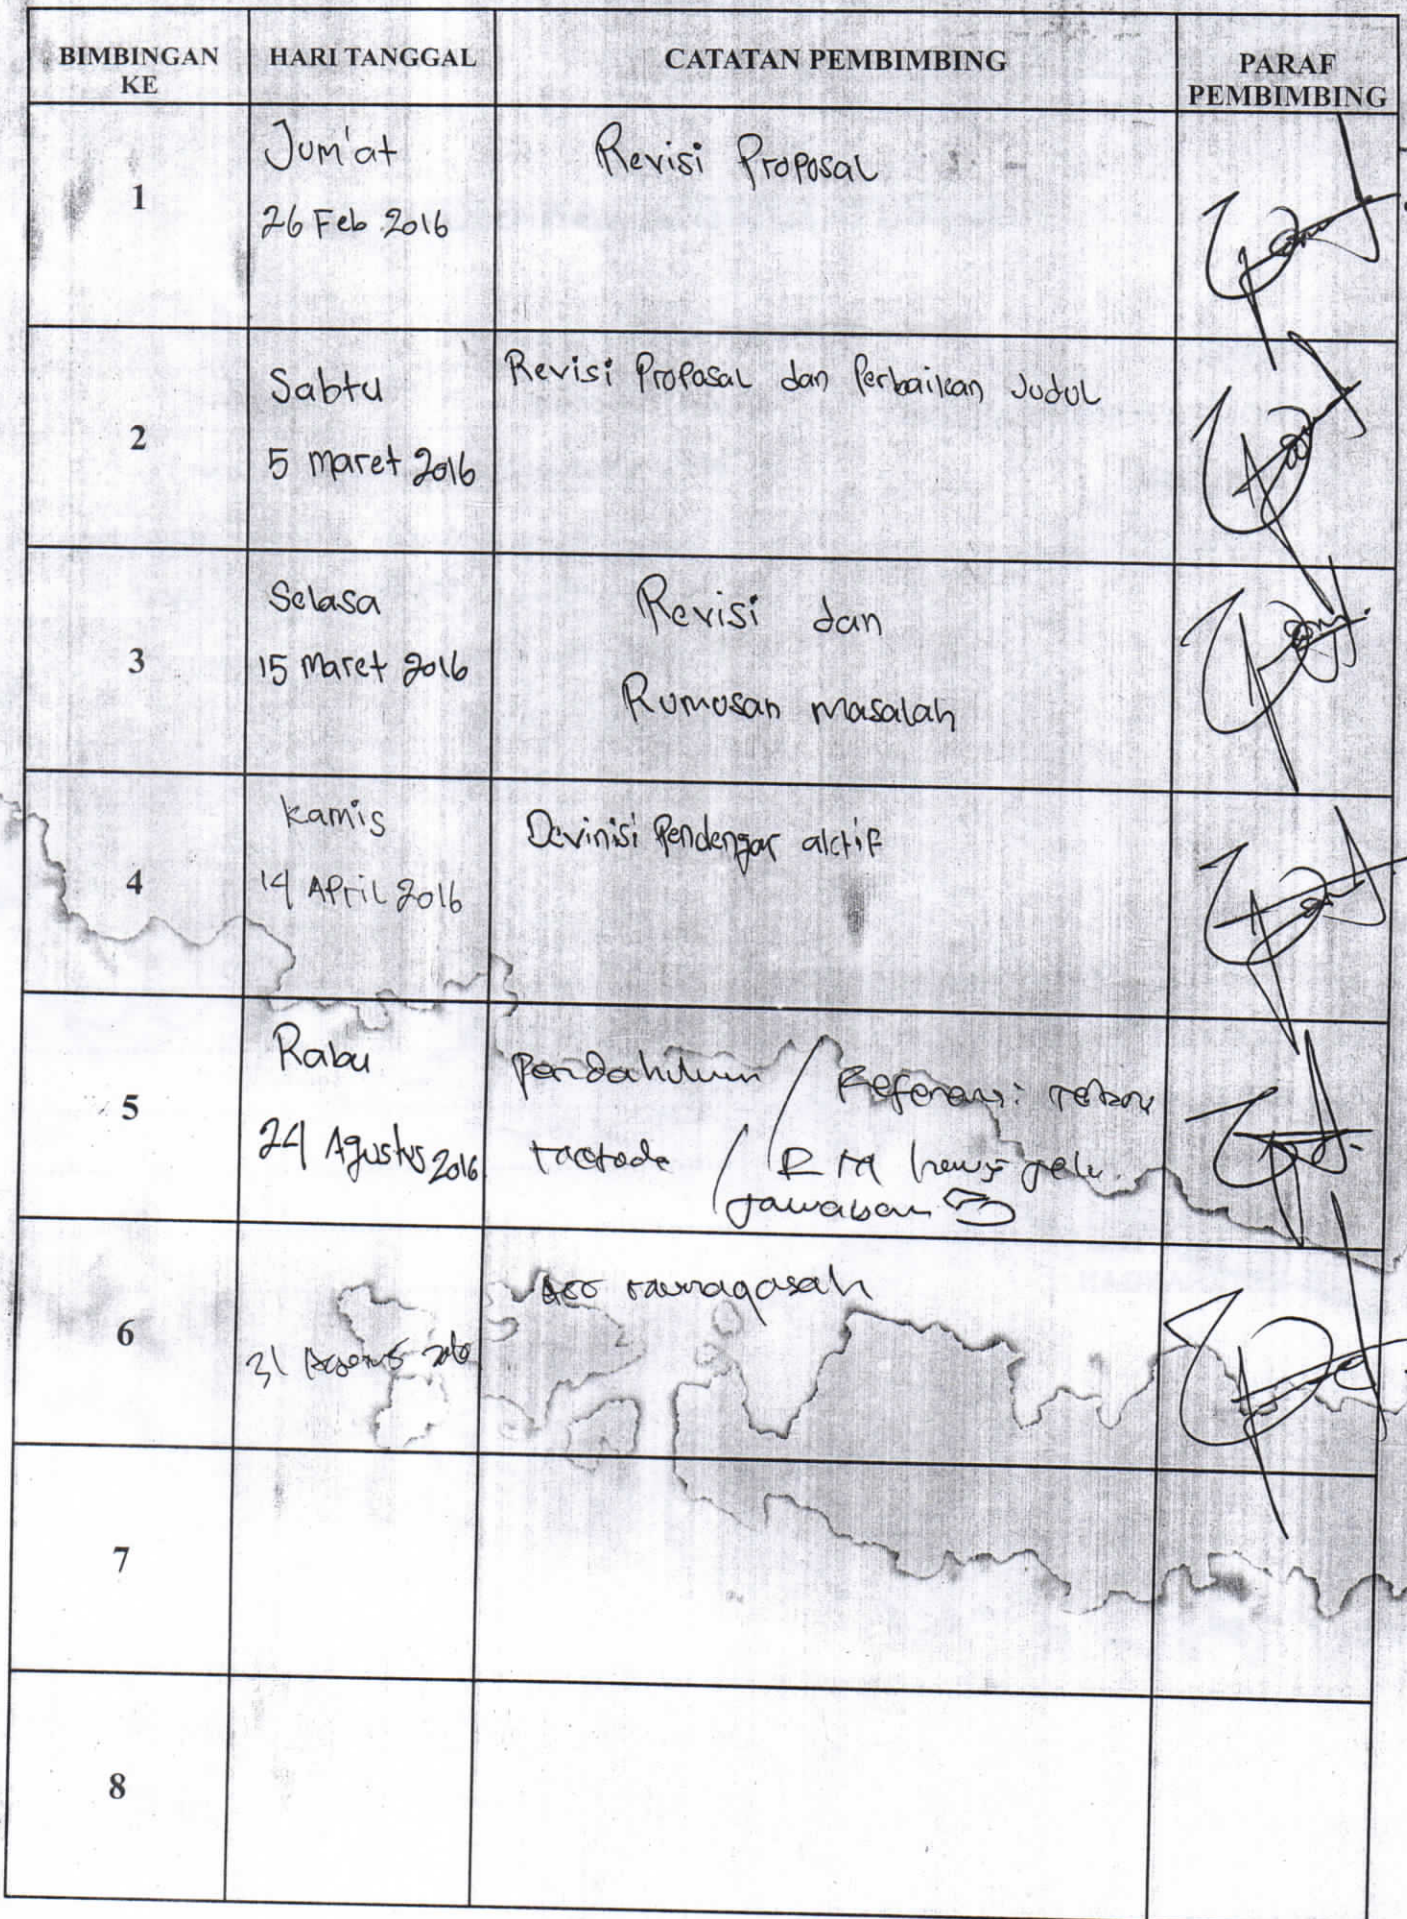 BIMBINGAN KE
HARI TANGGAL
CATATAN PEMBIMBING
PARAF PEMBIMBING
1
Jum'at
26 Feb 2016
Revisi Proposal
2
Sabtu
5 Maret 2016
Revisi Proposal dan Perbaikan Judul
3
Selasa
15 Maret 2016
Revisi dan
Rumusan Masalah
4
Kamis
14 April 2016
Devinisi Pendengar aktif
5
Rabu
24 Agustus 2016
Pendahuluan / Referensi
Metode / R M
jawaban 3
6
31 Agustus 2016
Acc munaqasah
7
8